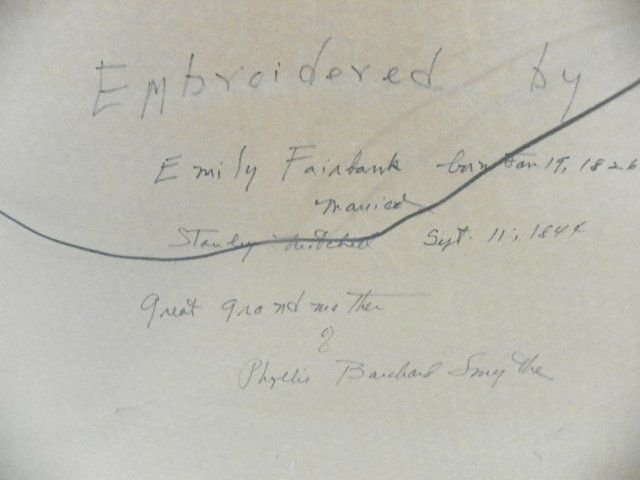 Embroidered by
Emily Fairbank born Jan 19, 1826
married
Stanley Mitchell Sept. 11, 1844
Great grandmother
of
Phyllis Barchard Smythe